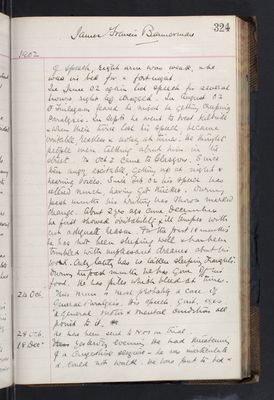 324
James Francis Bannerman
1902
of speech, right arm was weak, & he
was in bed for a fortnight.
In June 02 again lost speech for several
hours right leg dragged. In August 02
Dr Finlayson feared he might be getting creeping
Paralysis. In Sept. he went to West Kilbride
& when there first lost his speech became
irritable restless & noisy at times. He thought
people were talking about him in the
street. In Oct 2 came to Glasgow. Since
then angry, excitable, getting up at night &
hearing voices. Since Oct 02 his speech has
altered much, having got thicker. During
past month his writing has shown marked
change. About 2 yrs ago since December
he first showed irritability & ill temper with
out adequate reason. For the past 18 months
he has not been sleeping well & has been
troubled with unpleasant dreams about
lately has he taken sleeping draughts.
During the past month he has gone off his
food. He has piles which bleed at times.
24 Oct. This man is most probably a case of
General Paralysis. His speech, gait, eyes
& general motor & mental condition all
point to it.
28 Oct. He has been sent to on trial.
18 Dec. yesterday evening he had
of a Congestive seizure – he was inarticulate
& could not walk. He was put to bed &